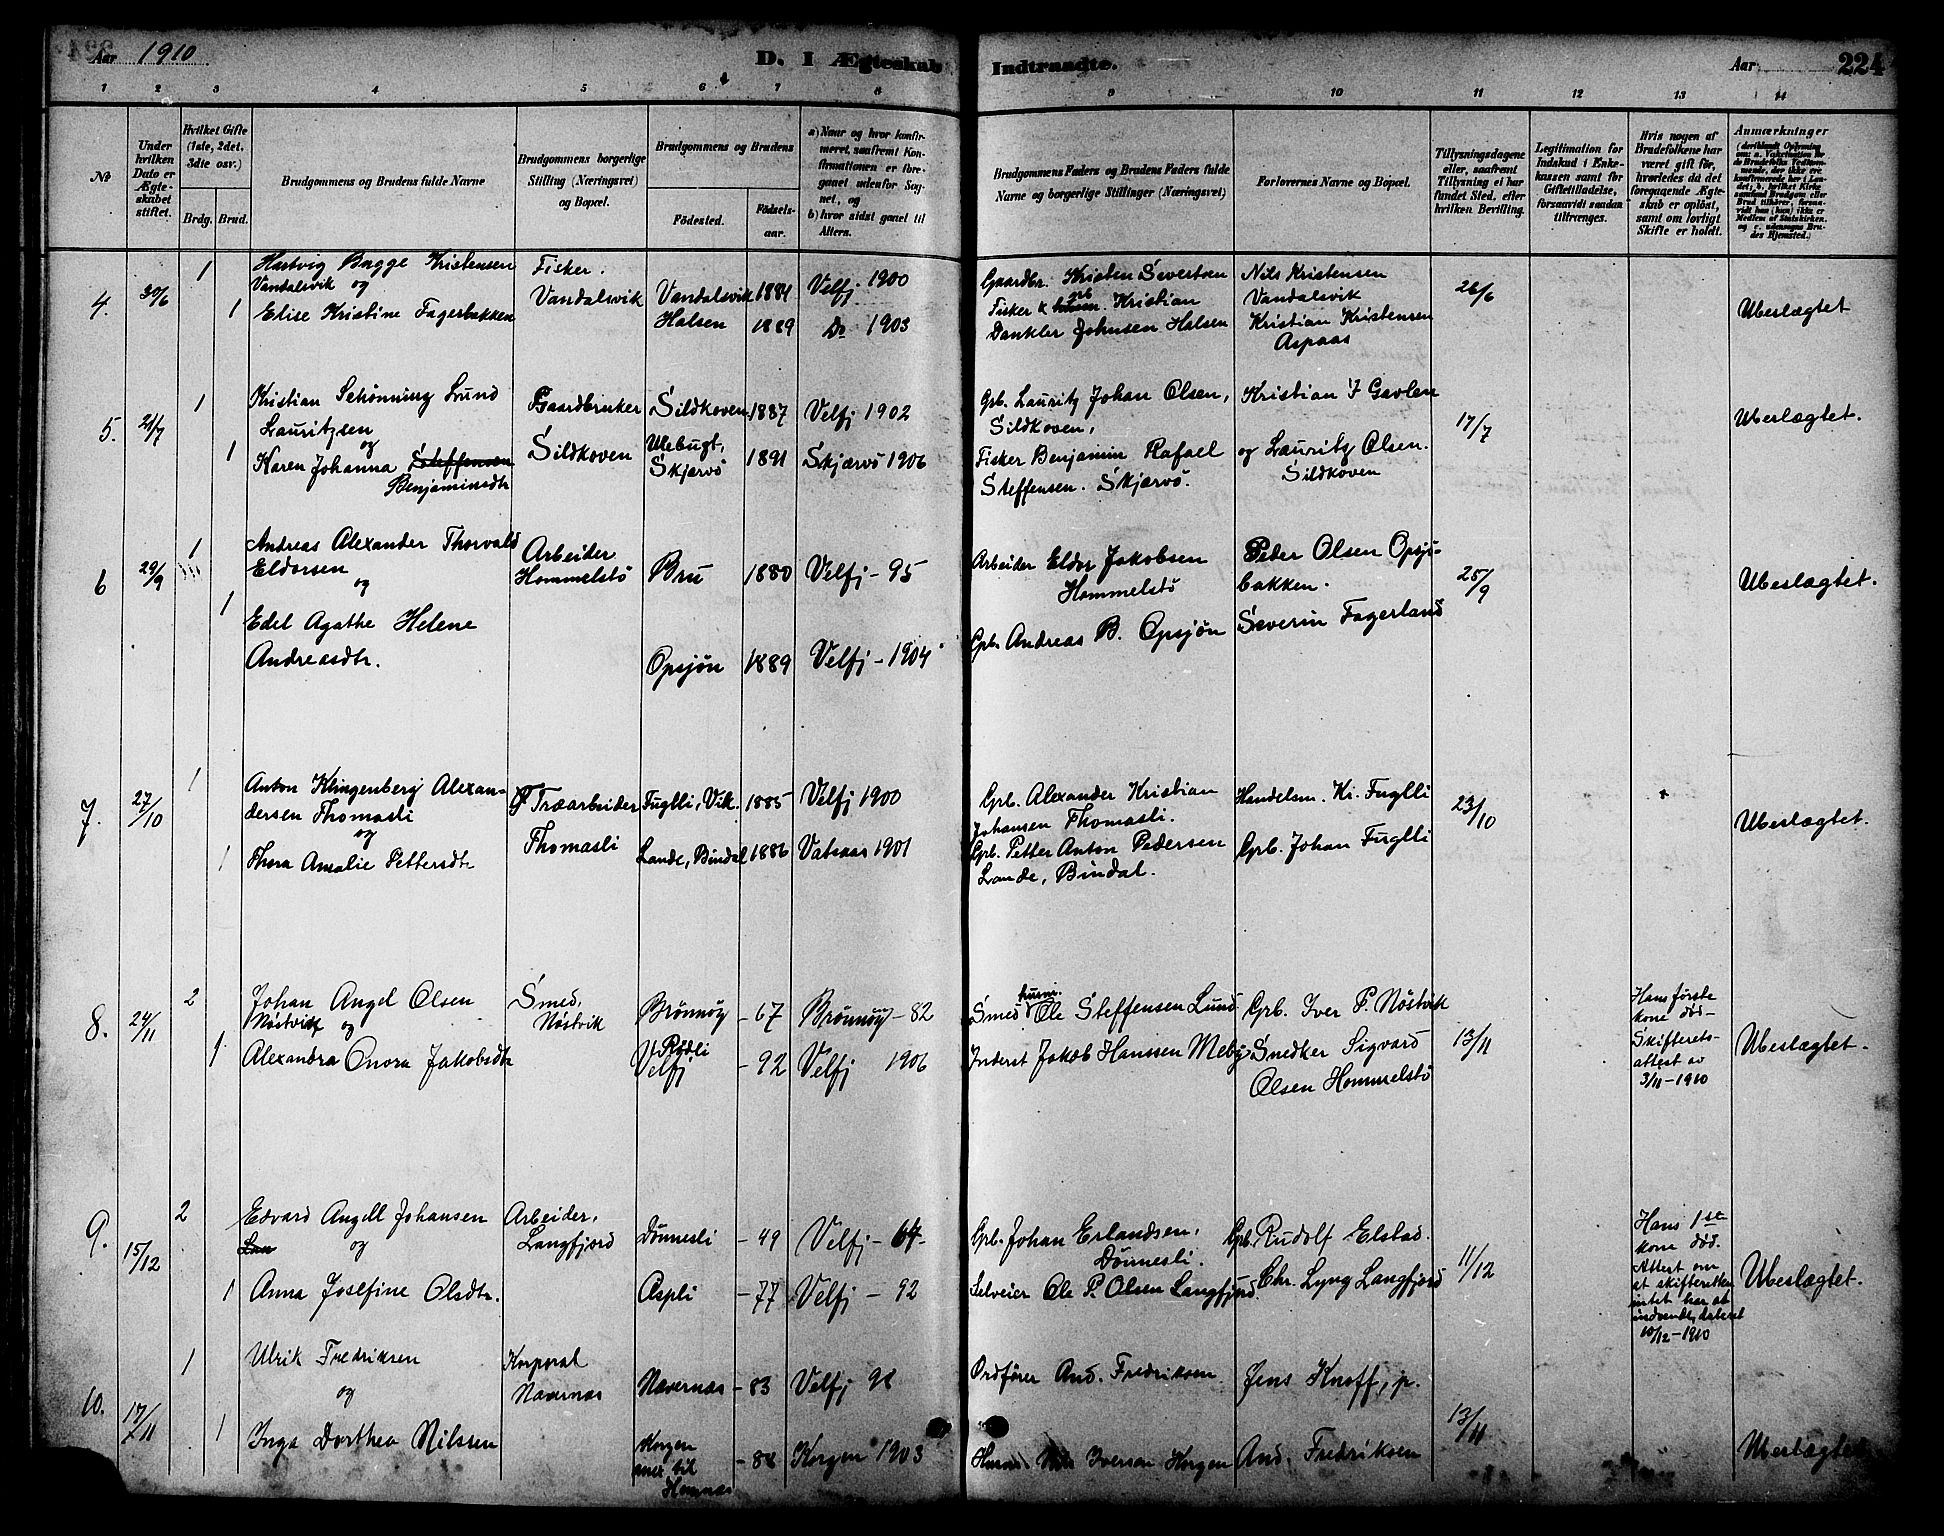 Aar 1910
D. I Ægteskab
Indtraadte.
Aar
224
1 2 3 4 5 6 7 8 9 10 11 12 13 14
No
Under hvilken Dato er Ægteskabet stiftet.
Hvilket Gifte (1ste, 2det, 3die osv.)
Brdg. Brud.
Brudgommens og Brudens fulde Navne
Brudgommens borgerlige Stilling (Næringsvei) og Bopæl.
Brudgommens og Brudens
Födested.
Födselsaar.
a) Naar og hvor konfirmeret, saafremt Konfirmationen er foregaaet udenfor Sognet, og
b) hvor sidst gaaet til Alters.
Brudgommens Faders og Brudens Faders fulde Navne og borgerlige Stillinger (Næringsvei)
Forlovernes Navne og Bopæl.
Tillysningsdagene eller, saafremt Tillysning ei har fundet Sted, efter hvilken Bevilling.
Legitimation for Indskud i Enkekassen samt for Giftetilladelse, forsaavidt saadan tiltrænges.
Hvis nogen af Brudefolkene har været gift før, hvorledes da det foregaaende Ægteskab er oplöst, samt om lovligt Skifte er holdt.
Anmærkninger
4. 30/6 1 Hartvig Bagge Kristensen
Vandalsvik og
1 Elise Kristine Fagerbakken
Fisker.
Vandalsvik
Vandalsvik 1881 Velfj 1900
Halsen 1889 Do 1903
Gaardbr. Kristen Sivertsen
Fisker & grb Kristian
Dankler Johnsen Halsen
Nils Kristensen
Vandalsvik
Kristian Kristensen
Aspaas
26/6
Ubeslægtet
5. 21/7 1 Kristian Schönning Lund
Lauritzsen
og
1 Karen Johanna Steffensen
Benjaminsdtr
Gaardbruker
Sildkoven
Sildkoven 1887 Velfj 1902
Ulebugt,
Skjærvö 1891 Skjærvö 1906
Gpb. Lauritz Johan Olsen,
Sildkoven,
Fisker Benjamin Rafael
Steffensen. Skjærvö.
Kristian J Gavlen
og Lauritz Olsen.
Sildkoven
17/7
Ubeslægtet.
6 29/9 1 Andreas Alexander Thorvald
Eldorsen
og
1 Edel Agathe Helene
Andreasdtr.
Arbeider
Hommelstö
Bru 1880 Velfj - 95
Opsjön 1889 Velfj - 1904
Arbeider Eldor Jakobsen
Hommelstö
Gpb. Andreas B. Opsjön
Peder Olsen Opsjöbakken.
Severin Fagerland
25/9
Ubeslægtet.
7. 27/10 1 Anton Klingenberg Alexandersen Thomasli
og
1 Thora Amalie Pettersdtr
Træarbeider
Thomasli
Fuglli, Vik. 1885 Velfj 1900
Lande, Bindal 1886 Vatsaas 1901
Gpb. Alexander Kristian
Johansen Thomasli.
Gpb. Petter Anton Pedersen
Lande, Bindal.
Handelsm. Kr. Fuglli
Gpb. Johan Fuglli
23/10
Ubeslægtet.
8. 24/11 2 Johan Angel Olsen
Nöstvik og
1 Alexandra Onora Jakobsdtr
Smed,
Nöstvik
Brönnöy - 67 Brönnöy - 82
Rödli
Velfj - 92 Velfj 1906
husm.
Smed Ole Steffensen Lund
Inderst Jakob Hanssen Meby
Gpb. Iver P. Nöstvik
Snedker Sigvard
Olsen Hommelstö
13/11
Hans förste
kone död -
Skifterets-
attest av
3/11 - 1910
Ubeslægtet.
9. 15/12 2 Edvard Angell Johansen
Lan og
1 Anna Josefine Olsdtr.
Arbeider,
Langfjord
Dönnesli - 49 Velfj - 64
Aspli - 77 Velfj - 92
Gpb. Johan Erlandsen,
Dönnesli.
Selveier Ole P. Olsen Langfjord.
Gpb. Rudolf Elstad.
Chr. Lyng Langfjord
11/12
Hans 1ste
kone död.
Attest om
at skifteretten
intet har at
indvende, dateret
10/12 - 1910
Ubeslægtet.
10. 17/11 1 Ulrik Fredriksen
og
1 Inga Dorthea Nilssen
Korporal
Nævernæs
Nævernæs - 83 Velfj 98
Korgen
anex til
Hemnæs - 88 Korgen 1903
Ordförer And. Fredriksen
Husm. Nils Iverson Korgen
Jens Knoff, jr.
And. Fredriksen
13/11
Ubeslægtet